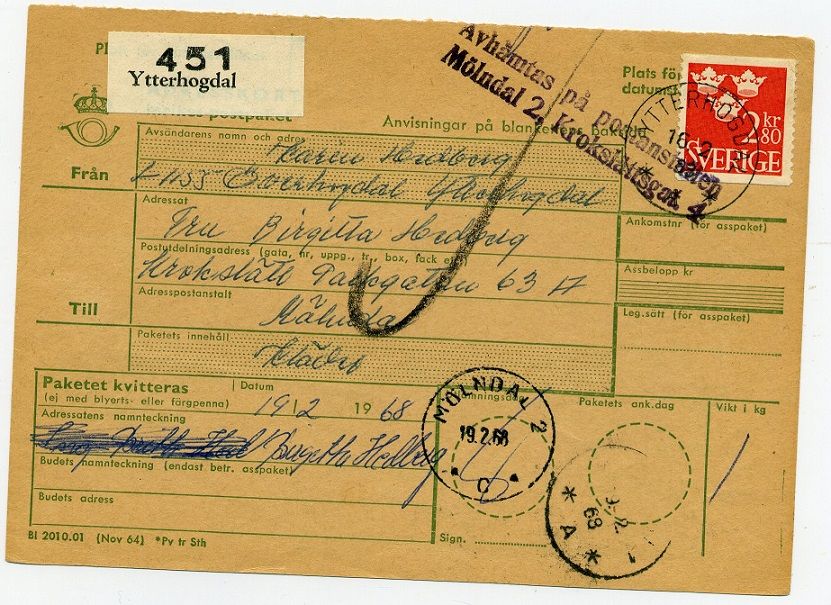 451
Ytterhogdal
Avhämtas på postanstalten
Mölndal 2, Krokslättsgat. 4
Plats för
datumst
kr
2.80
SVERIGE
YTTERHOGDAL
16.2
postpaket
Anvisningar på blankettens baksida
Avsändarens namn och adress
Karin Hedborg
Från
Ytterhogdal
Adressat
Fru Birgitta Hedborg
Ankomstnr (för asspaket)
Postutdelningsadress (gata, nr, uppg., tr., box, fack etc)
Krokslätt Parkgatan 63 A
Assbelopp kr
Till
Adresspostanstalt
Mölndal
Leg.sätt (för asspaket)
Paketets innehåll
Kläder
Paketet kvitteras
(ej med blyerts- eller färgpenna)
Datum
19/2 1968
Paketets ank.dag
Vikt i kg
Adressatens namnteckning
Birgitta Hedborg
MÖLNDAL 2
19.2.68
* C *
1
Budets namnteckning (endast betr. asspaket)
Budets adress
68
* A *
Bl 2010.01 (Nov 64) *Pv tr Sth
Sign.